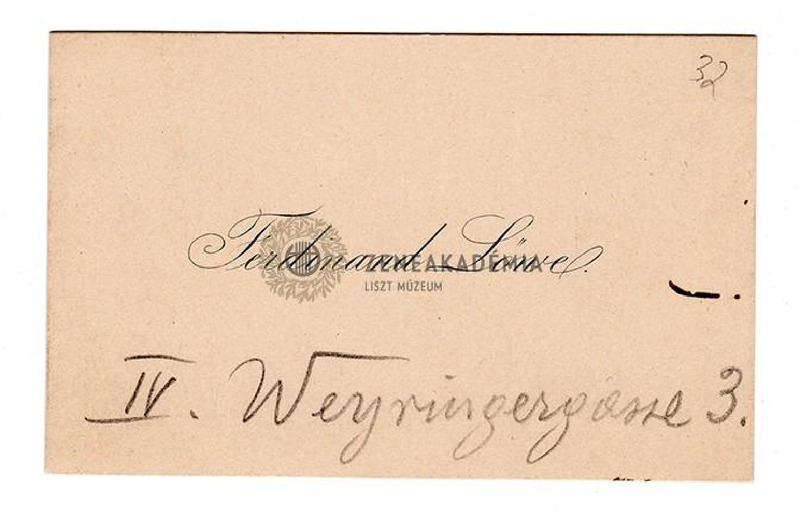 32
Ferdinand Löwe.
ZENEAKADÉMIA
LISZT MÚZEUM
IV. Weyringergasse 3.